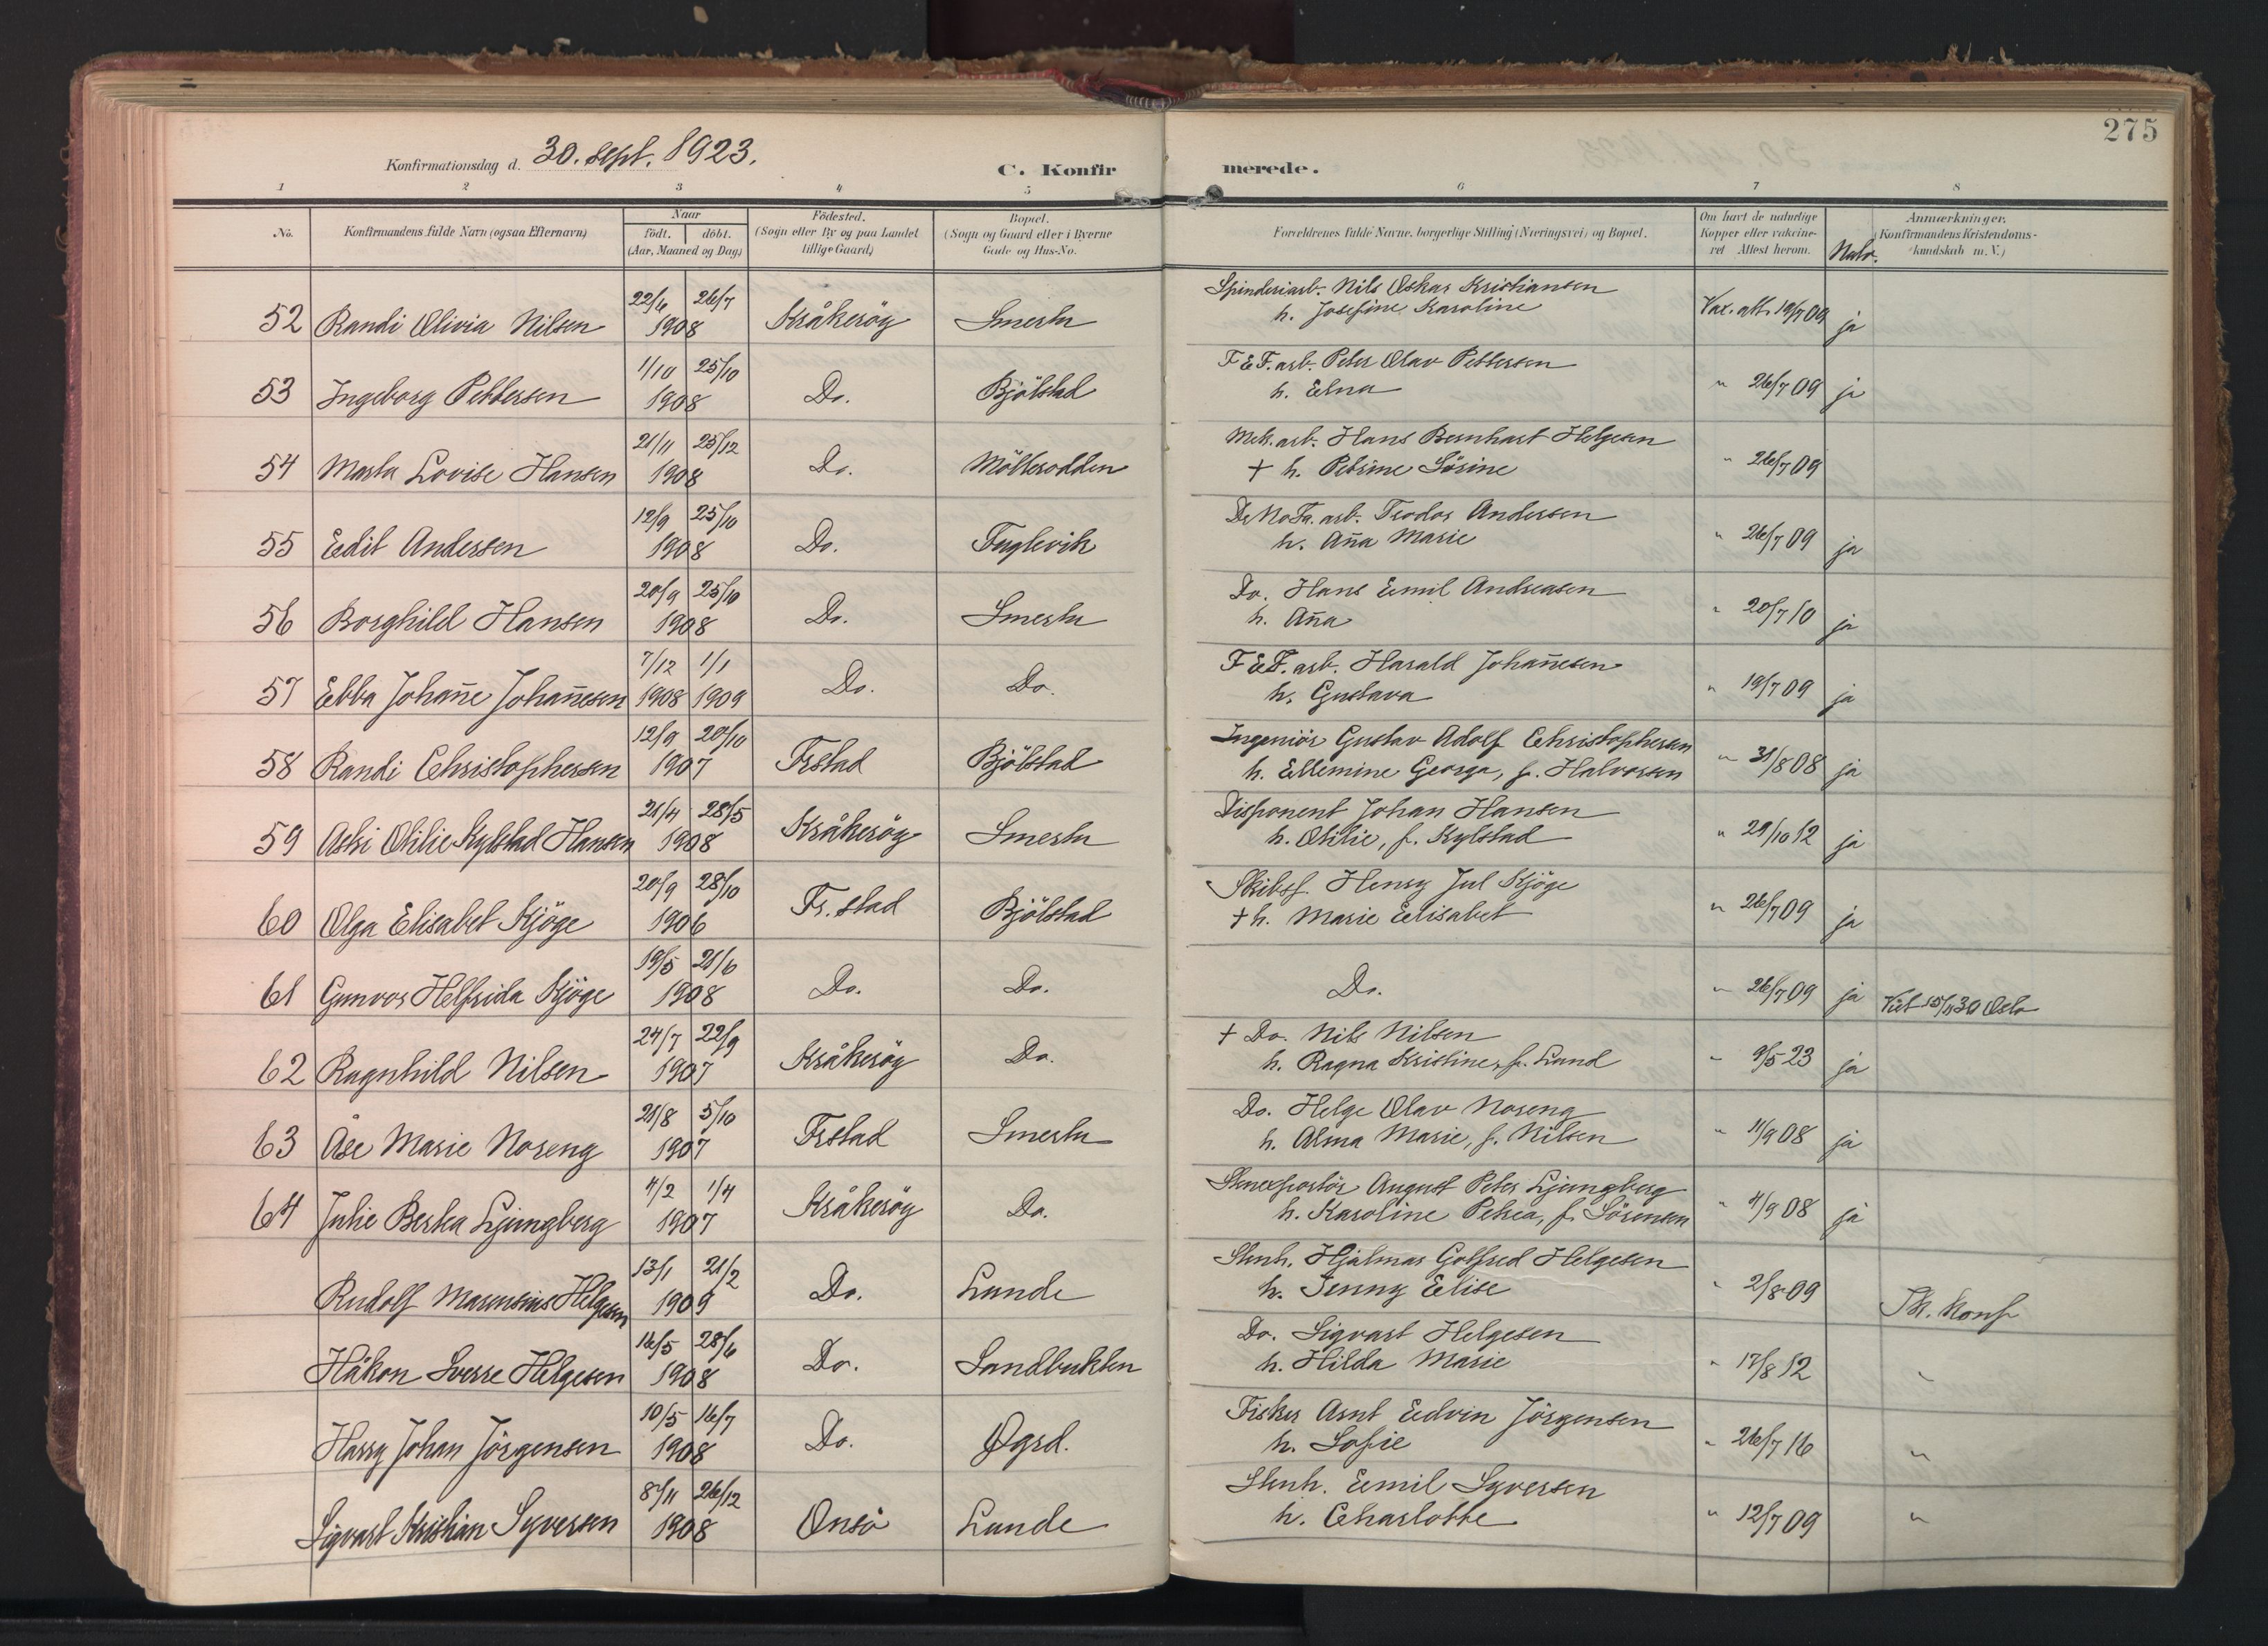 275
Konfirmationsdag d. 30. sept. 1923.
C. Konfirmerede.
1 2 3 4 5 6 7 8
No. Konfirmandens fulde Navn (ogsaa Efternavn) Naar Födested. Bopæl. Forældrenes fulde Navne, borgerlige Stilling (Næringsvei) og Bopæl. Om havt de naturlige Anmærkninger.
födt. döbt. (Sogn eller By og paa Landet (Sogn og Gaard eller i Byerne Kopper eller vakcine- (Konfirmandens Kristendoms-
(Aar, Maaned og Dag) tillige Gaard) Gade og Hus-No. ret Attest herom. Nadv. kundskab m. V.)
Spinderiarb. Nils Oskar Kristiansen
52 Randi Olivia Nilsen 22/4 26/7 1908 Kråkeröy Smertu h. Josefine Karoline Vax. att. 19/7 09 ja
F & F. arb. Peter Olav Pettersen
53 Ingeborg Pettersen 1/10 25/10 1908 Do. Bjölstad h. Elna " 26/7 09 ja
Mek. arb. Hans Bernhart Helgesen
54 Marta Lovise Hansen 21/11 25/12 1908 Do. Möllerodden + h. Petrine Sörine " 26/7 09
De No Fa. arb. Teodor Andersen
55 Edit Andersen 12/9 25/10 1908 Do. Fuglevik h. Ana Marie " 26/7 09 ja
Do. Hans Emil Andreasen
56 Borghild Hansen 20/9 25/10 1908 Do. Smertu h. Ana " 20/7 10 ja
F & F. arb. Harald Johanesen
57 Ebba Johane Johanesen 7/12 1908 1/1 1909 Do. Do. h. Gustava " 19/7 09 ja
Ingeniör Gustav Adolf Christophersen
58 Randi Christophersen 12/9 20/10 1907 Frstad Bjölstad h. Ellemine Georga, f. Halvorsen " 31/8 08 ja
Disponent Johan Hansen
59 Astri Otilie Kylstad Hansen 21/4 28/5 1908 Kråkeröy Smertu h. Otilie, f. Kylstad " 29/10 12 ja
Skibsf. Henry Jul Kjöge
60 Olga Elisabet Kjöge 20/9 28/10 1906 Fr. stad Bjölstad + h. Marie Elisabet " 26/7 09 ja
61 Gunvor Helfrida Kjöge 19/5 21/6 1908 Do. Do. Do. " 26/7 09 ja 30 Oslo
+ Do. Nils Nilsen
62 Ragnhild Nilsen 24/7 22/9 1907 Kråkeröy Do. h. Ragna Kristine, f. Lund " 9/5 23 ja
Do. Helge Olav Noreng
63 Åse Marie Noreng 21/8 5/10 1907 Frstad Smertu h. Alma Marie, f. Nilsen " 11/9 08 ja
Stenexportör August Peter Ljungberg
64 Julie Berta Ljungberg 4/2 1/4 1907 Kråkeröy Do. h. Karoline Petrea, f. Sörensen " 4/9 08 ja
Stenh. Hjalmar Gotfred Helgesen
Rudolf Marensius Helgesen 13/1 21/2 1909 Do. Lunde h. Jenny Elise " 2/8 09 Th. Konf
Do. Sigvart Helgesen
Håkon Sverre Helgesen 16/5 28/6 1908 Do. Sandbukten h. Hilda Marie " 17/8 12 "
Fisker Arnt Edvin Jörgensen
Harry Johan Jörgensen 10/5 16/7 1908 Do. Øgrd. h. Sofie " 26/7 16 "
Stenh. Emil Syversen
Sigvart Kristian Syversen 8/11 26/12 1908 Onsö Lunde h. Charlotte " 12/7 09 "